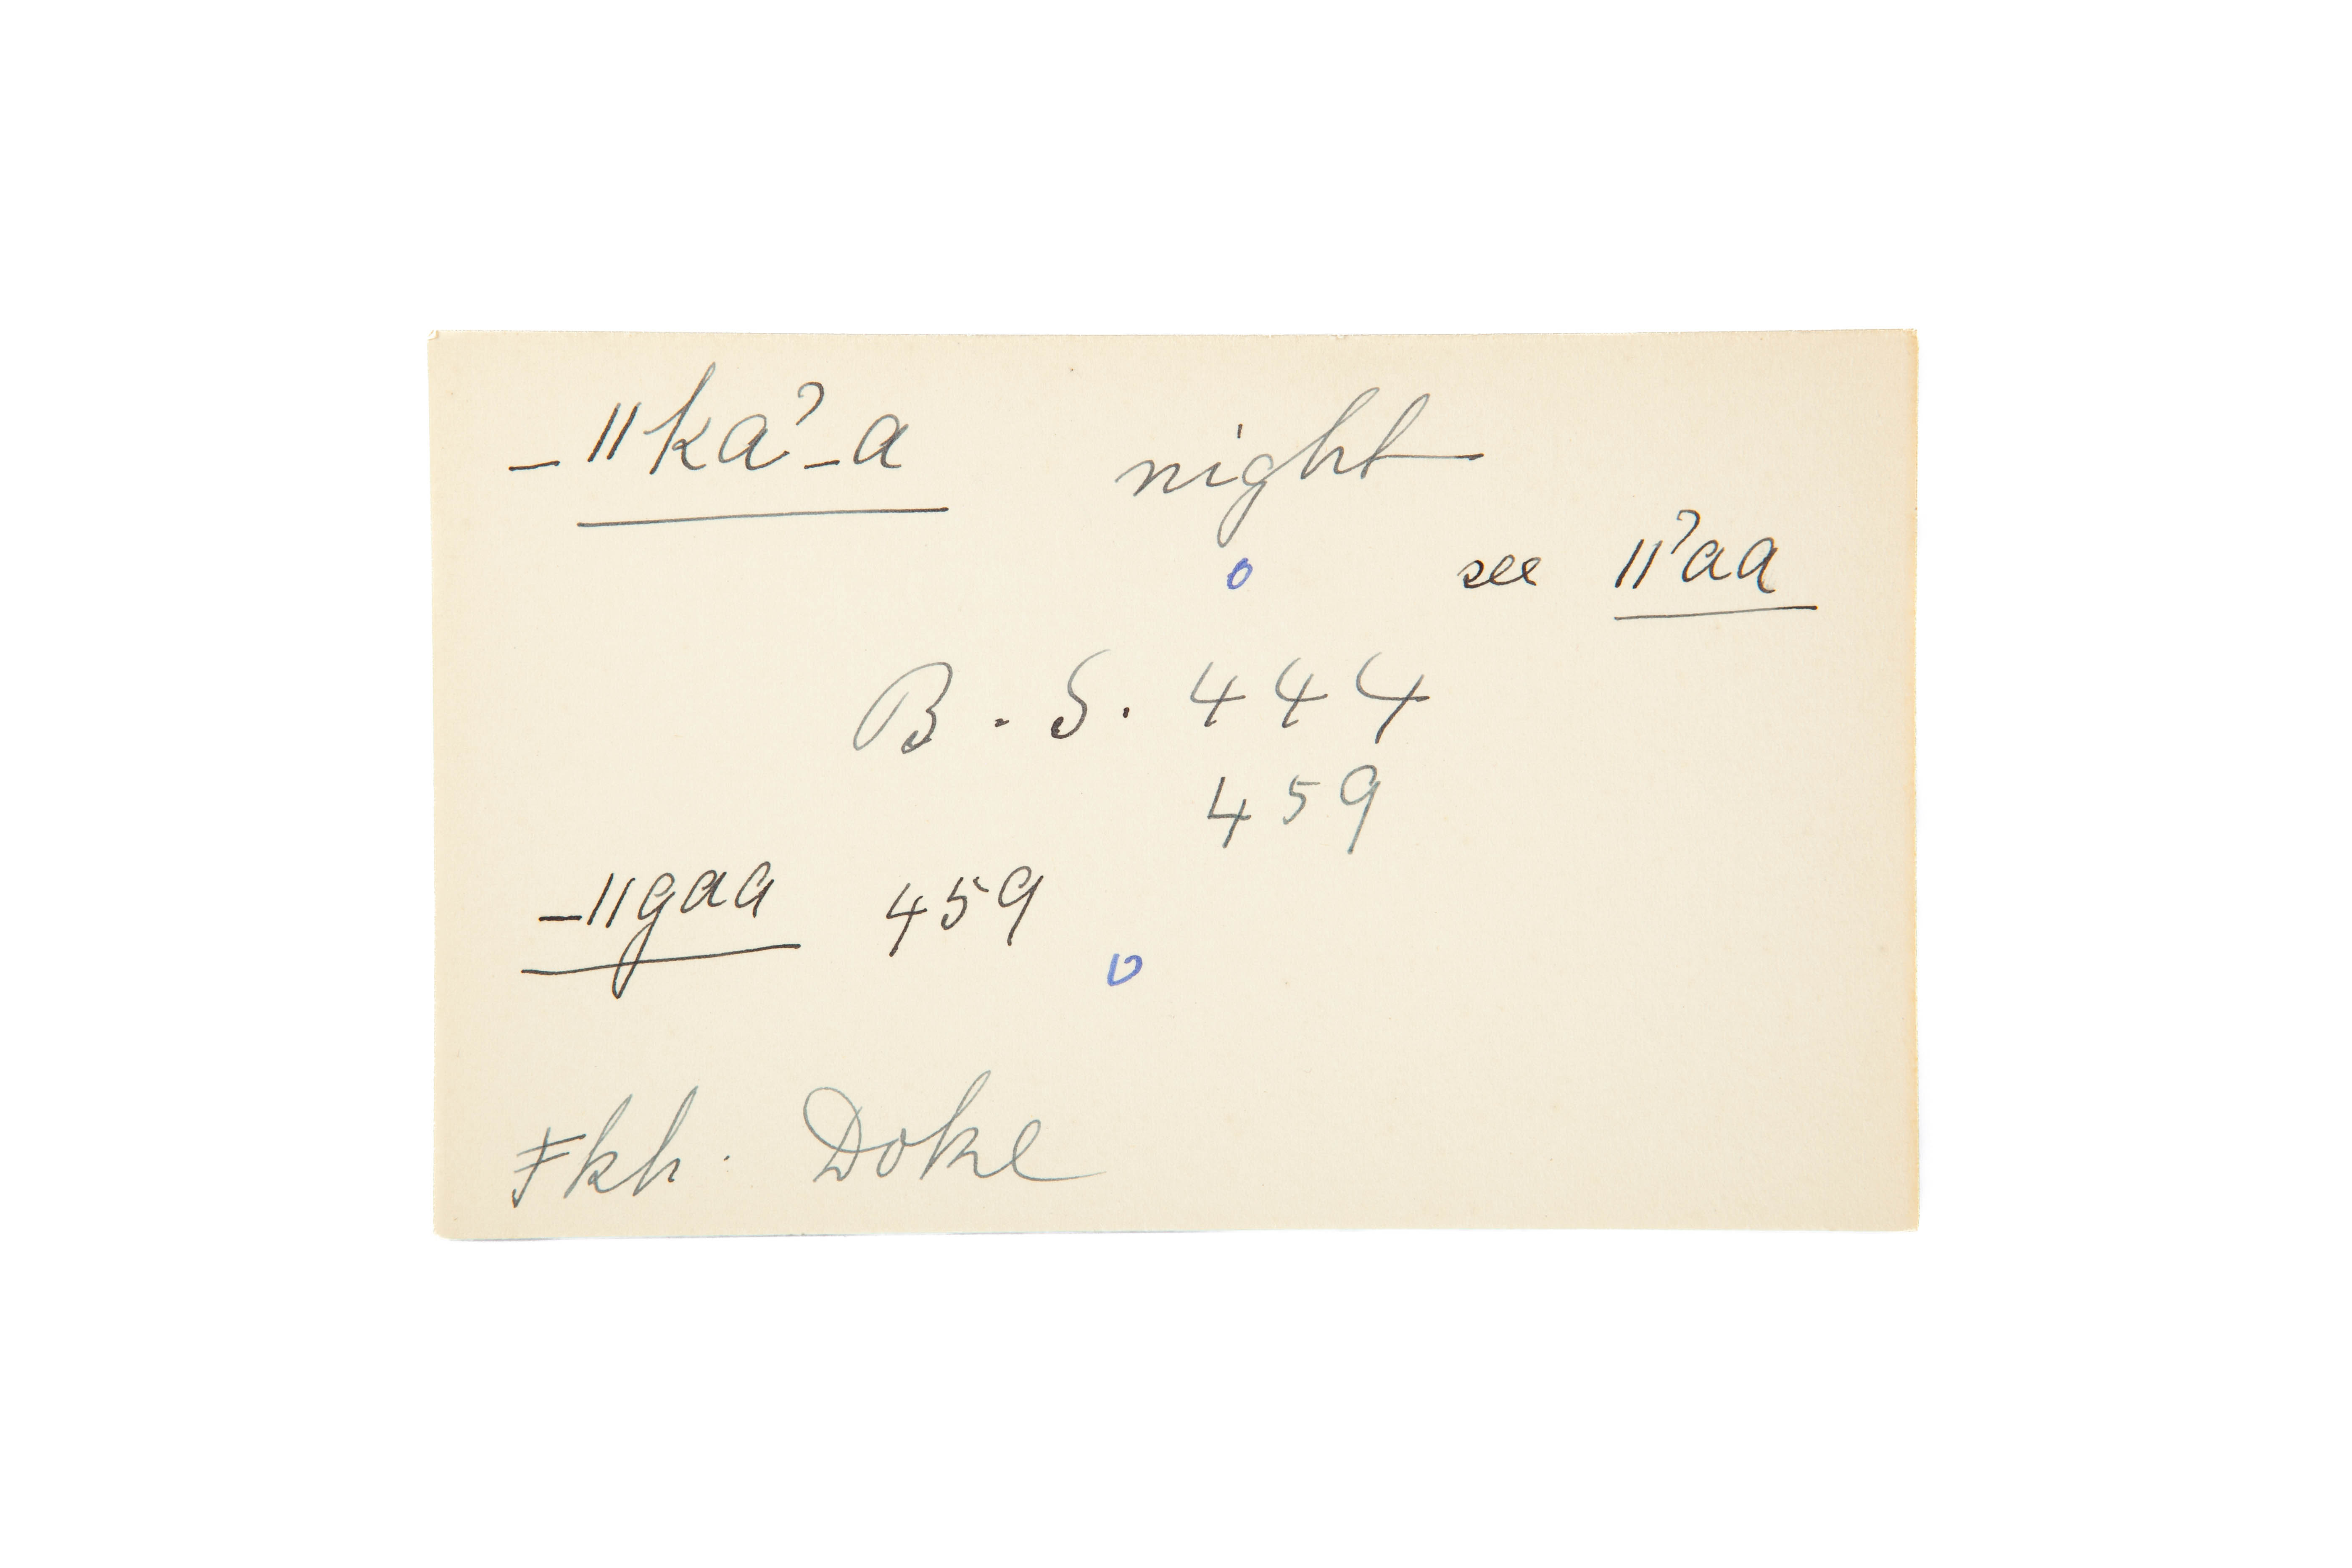 _ ǁkaˀ_a night
o see ǁˀaa
B. S. 444
459
_ǁgaa 459
o
ǂkh. Doke